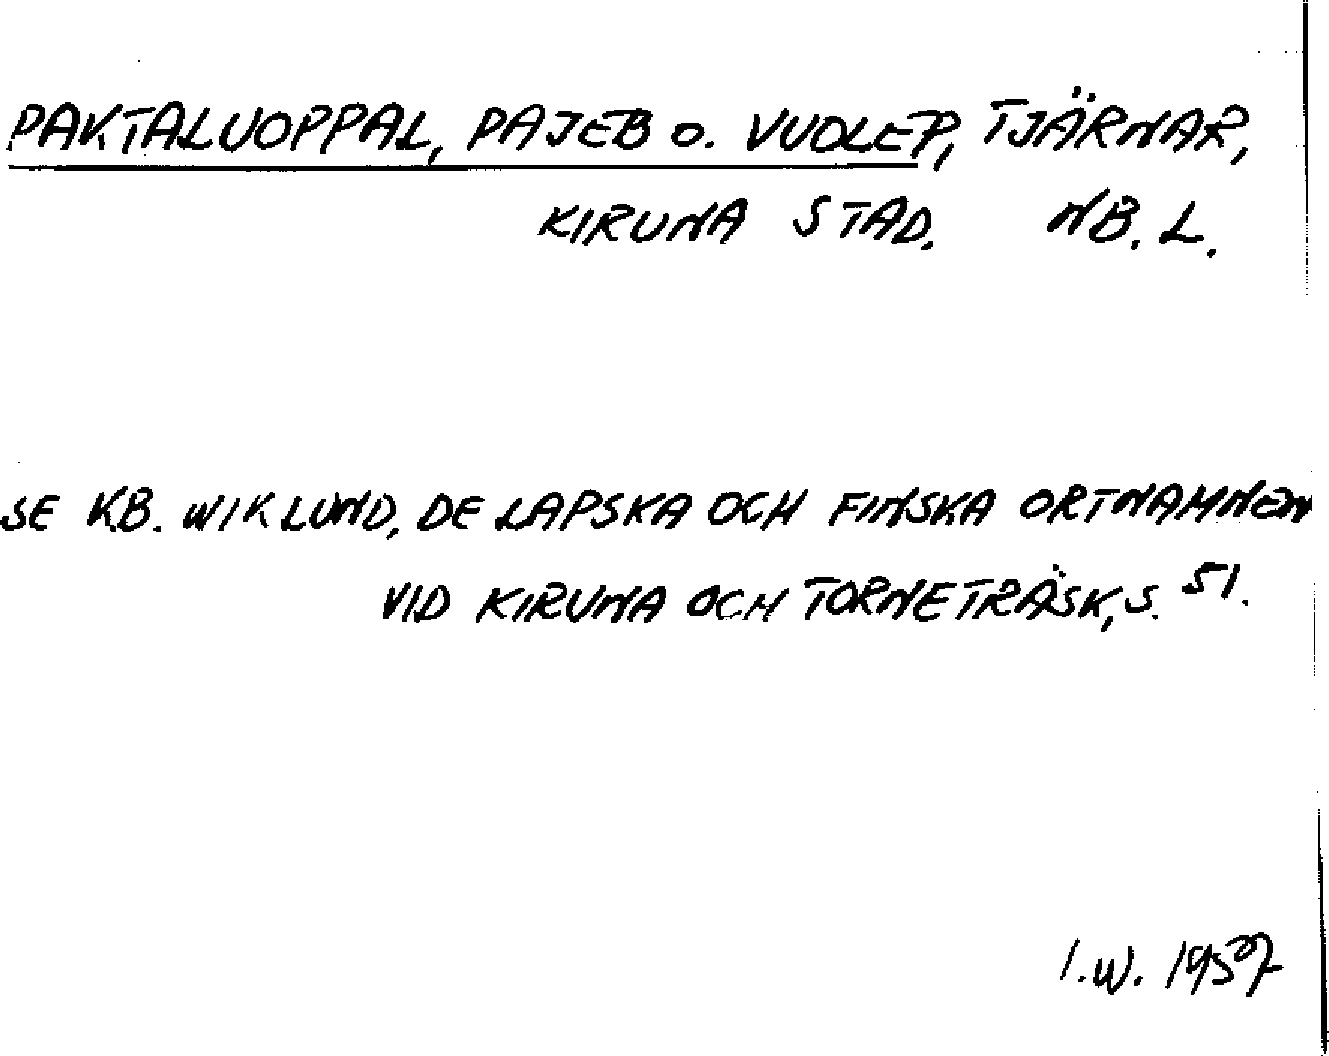 PAKTALUOPPAL, PAJEB O. VUOLEP, TJÄRNAR,
KIRUNA STAD. NB. L.
SE K.B. WIKLUND, DE LAPSKA OCH FINSKA ORTNAMNEN
VID KIRUNA OCH TORNETRÄSK, S. 51.
I.W. 1957